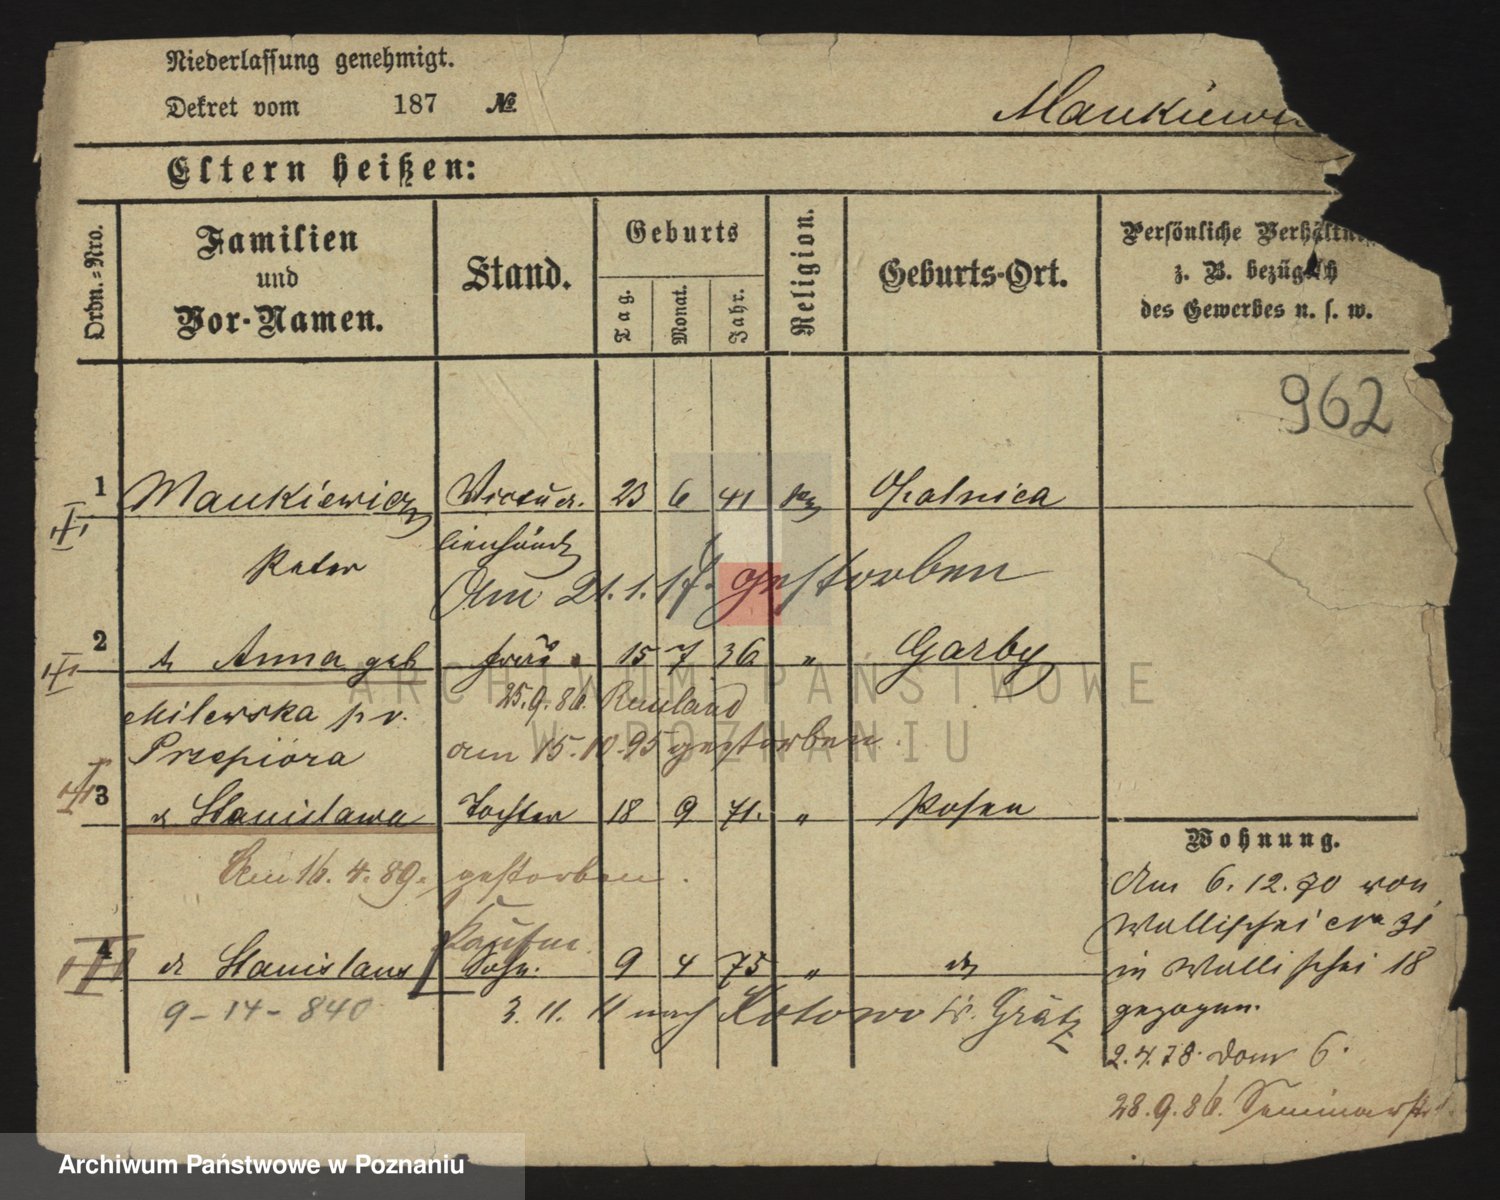 Niederlassung genehmigt.
Dekret vom 187 №
Maukiewi
Eltern heißen:
Ordn.=Nro.
Familien und Vor-Namen.
Stand.
Geburts
Tag.
Monat.
Jahr.
Religion.
Geburts-Ort.
Persönliche Verhältn
z. B. bezüglich
des Gewerbes u. s. w.
962
1 Maukiewicz Victua- 23 6 41 Opalnica
lienhändl
Peter
Am 21.1.17. gestorben
2 Anna geb frau 15 7 36 " Garby
Milewska pr.
25.9.86. Rußland
Przepióra
am 15.10.95 gestorben
3 Stanislawa Tochter 18 9 71. " Posen
Am 16.4.89. gestorben.
Kaufm.
4 Stanislaus Sohn. 9 4 75 " do
9-14-840
3.11.11 nach Kotowo Gratz
Wohnung.
Am 6.12.70 von
Wallischei No 31
in Wallischei 18
gezogen.
2.4.78. Dom 6.
28.9.86. Seminarstr
ARCHIWUM PAŃSTWOWE
W POZNANIU
Archiwum Państwowe w Poznaniu